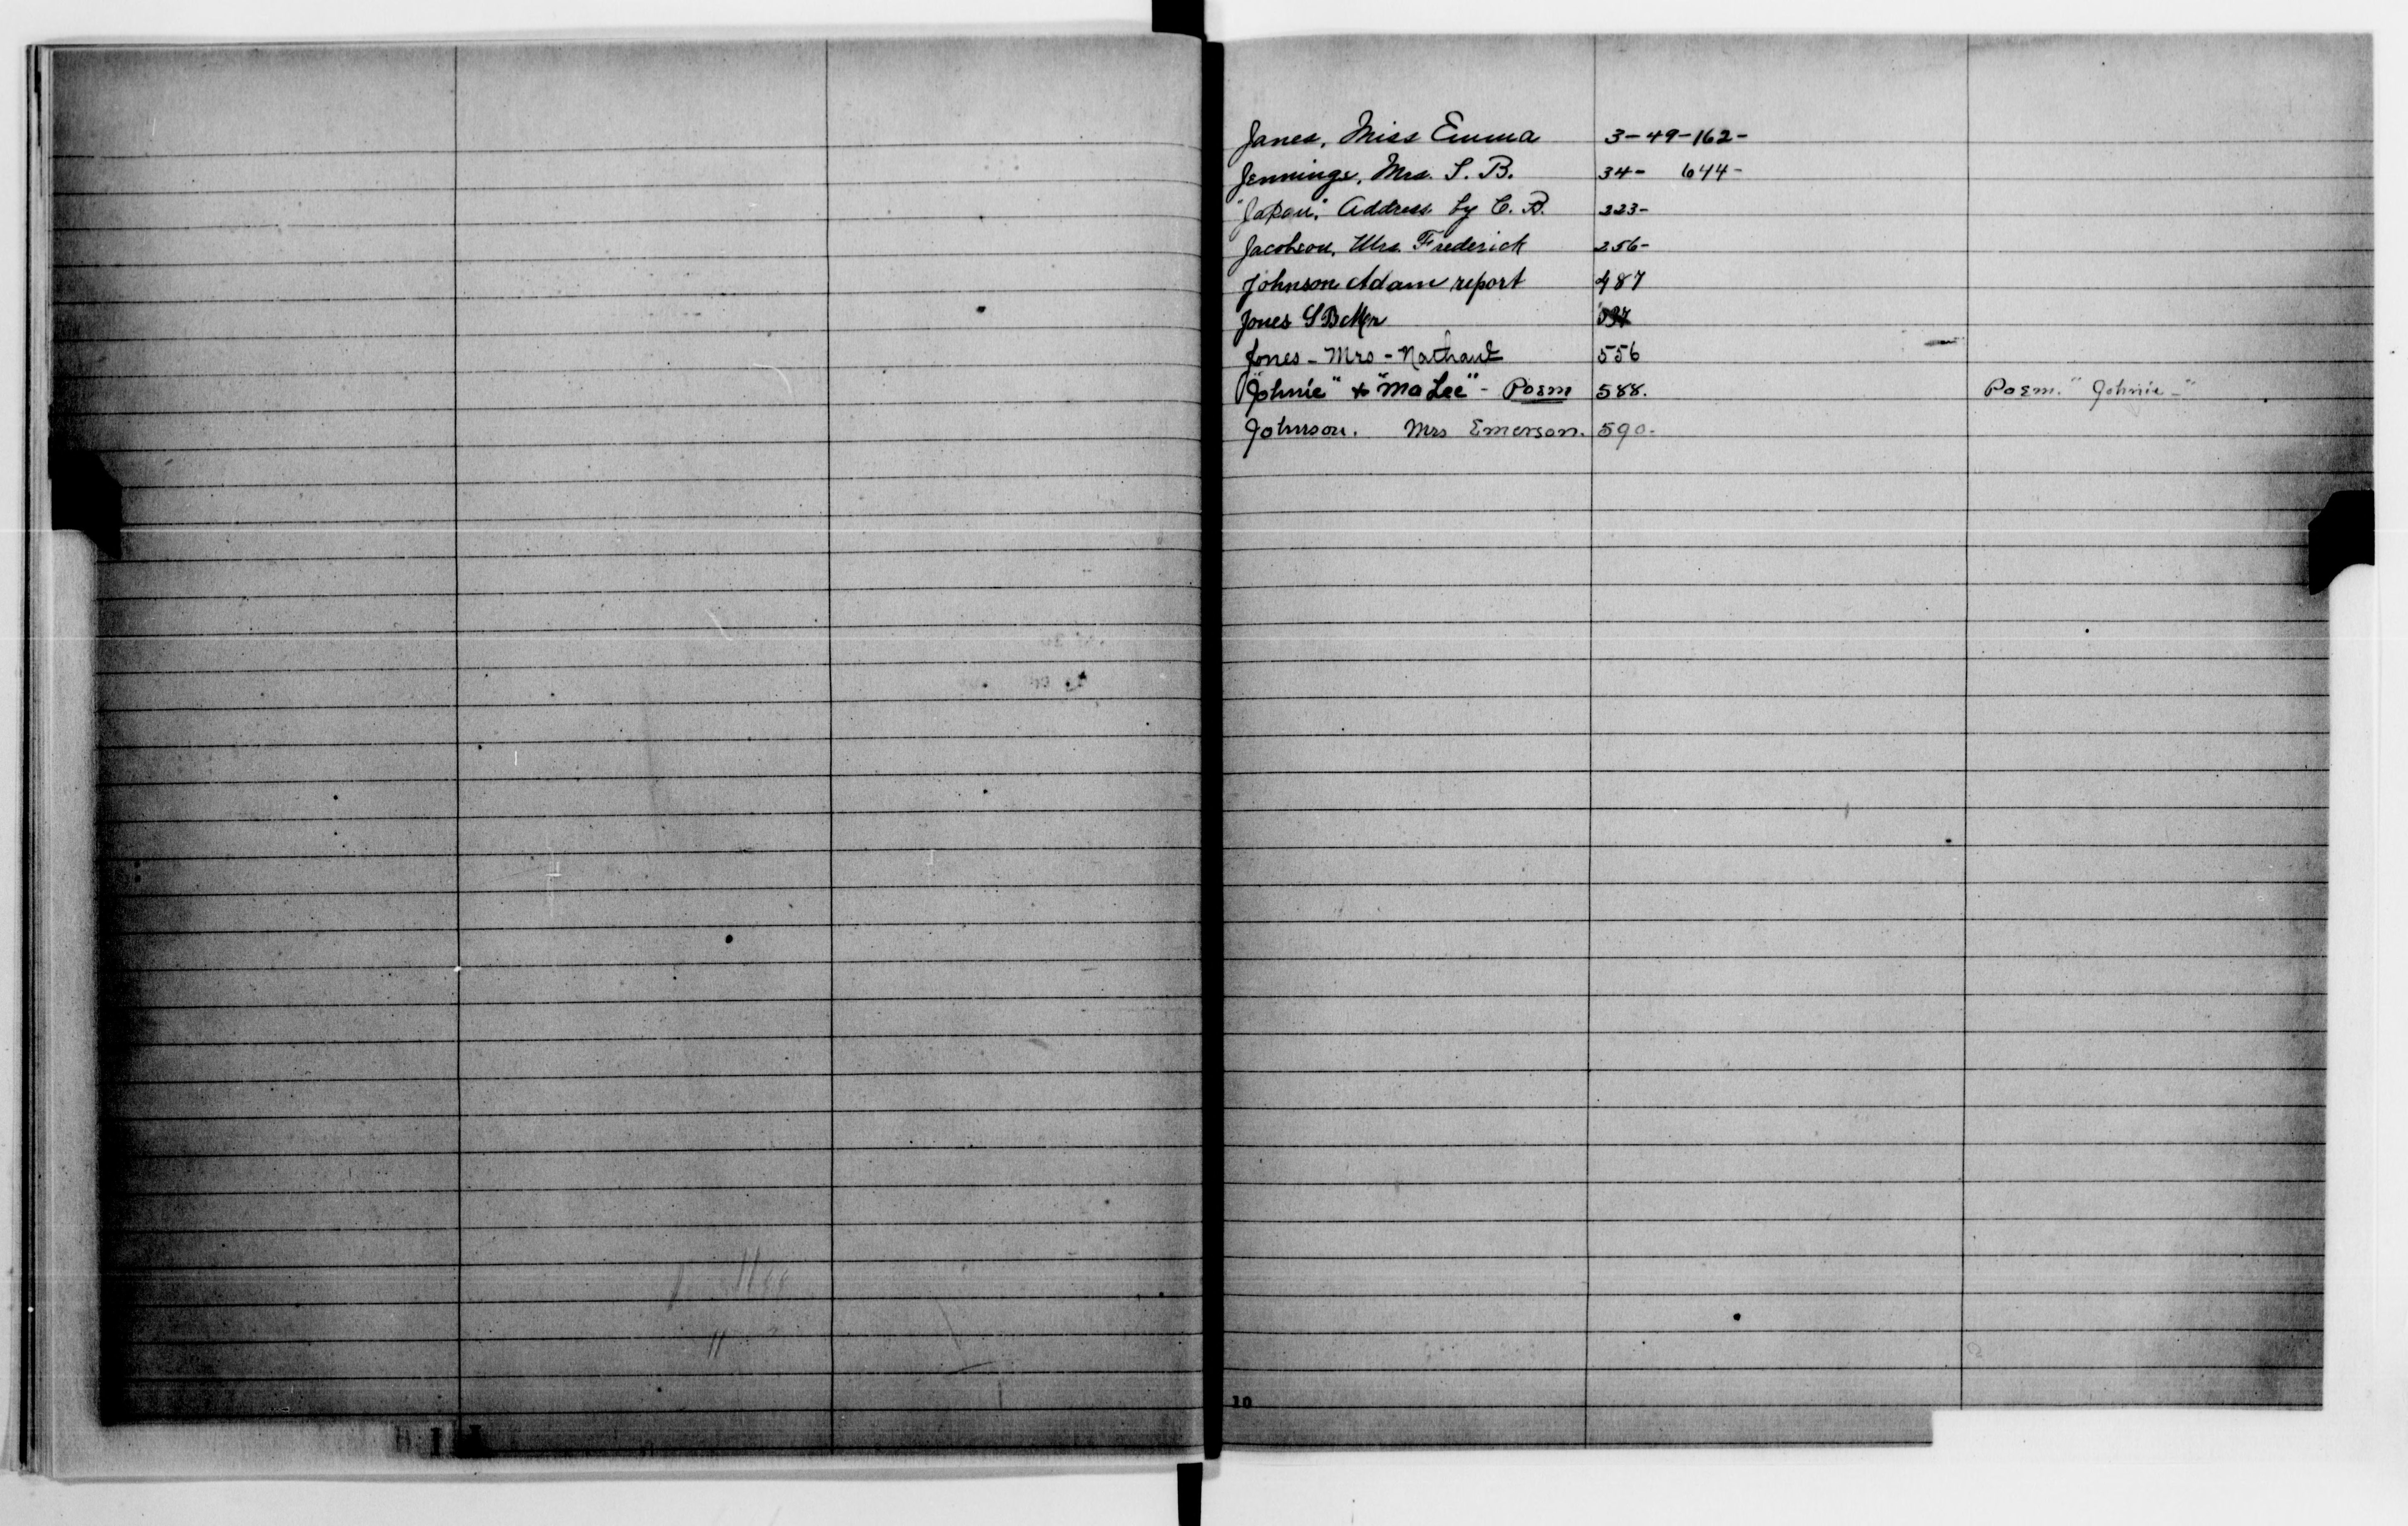 Janes, Miss Emma 3-49-162-
Jennings, Mrs. S. B. 34- 644-
"Japan," Address by C. B. 223-
Jacobson, Mrs. Frederick 256-
Johnson Adam report 487
Jones S B
Jones - Mrs - 556
"Johnie" & "Ma Lee" - Poem 588. Poem. "Johnie -"
Johnson. Mrs Emerson. 590.
10